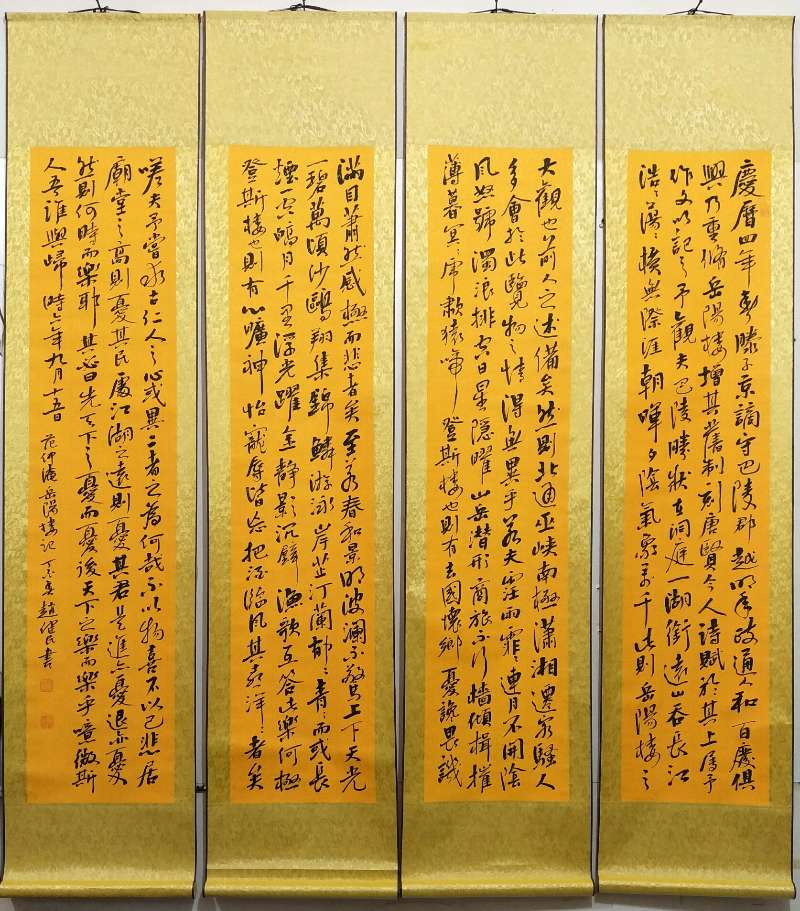 慶曆四年春滕子京謫守巴陵郡越明年政通人和百廢俱
興乃重脩岳陽樓增其舊制刻唐賢今人詩賦於其上屬予
作文以記之予觀夫巴陵勝狀在洞庭一湖銜遠山吞長江
浩浩蕩蕩橫無際涯朝暉夕陰氣象萬千此則岳陽樓之
大觀也前人之述備矣然則北通巫峽南極瀟湘遷客騷人
多會於此覽物之情得無異乎若夫霪雨霏霏連月不開陰
風怒號濁浪排空日星隱曜山岳潛形商旅不行檣傾楫摧
薄暮冥冥虎嘯猿啼登斯樓也則有去國懷鄉憂讒畏譏
滿目蕭然感極而悲者矣至若春和景明波瀾不驚上下天光
一碧萬頃沙鷗翔集錦鱗游泳岸芷汀蘭郁郁青青而或長
煙一空皓月千里浮光躍金靜影沉璧漁歌互答此樂何極
登斯樓也則有心曠神怡寵辱皆忘把酒臨風其喜洋洋者矣
嗟夫予嘗求古仁人之心或異二者之為何哉不以物喜不以己悲居
廟堂之高則憂其民處江湖之遠則憂其君是進亦憂退亦憂
然則何時而樂耶其必曰先天下之憂而憂後天下之樂而樂乎噫微斯
人吾誰與歸時六年九月十五日 范仲淹岳陽樓記 丁亥趙書